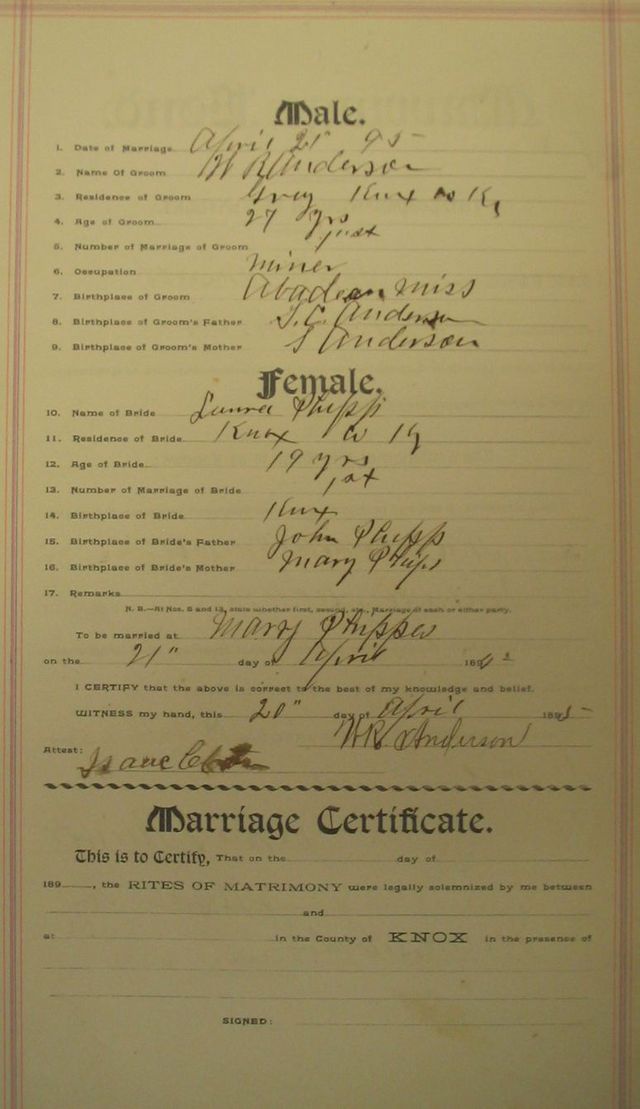 Male.
1. Date of Marriage April 21" 95
2. Name Of Groom W R Anderson
3. Residence of Groom Gray Knox Co Ky
4. Age of Groom 27 yrs
5. Number of Marriage of Groom 1st
6. Occupation miner
7. Birthplace of Groom Abadean Miss
8. Birthplace of Groom's Father Anderson
9. Birthplace of Groom's Mother S Anderson
Female.
10. Name of Bride Laura Phipps
11. Residence of Bride Knox Co Ky
12. Age of Bride 19 yrs
13. Number of Marriage of Bride 1st
14. Birthplace of Bride Knox
15. Birthplace of Bride's Father John Phipps
16. Birthplace of Bride's Mother Mary Phips
17. Remarks
N. B.—At Nos. 5 and 13, state whether first, second, etc., Marriage of each or either party.
To be married at Mary Phippes
on the 21" day of April 189
I CERTIFY that the above is correct to the best of my knowledge and belief.
WITNESS my hand, this 20" day of April 1895
W R Anderson
Attest: Isaac
Marriage Certificate.
This is to Certify, That on the day of
189 , the RITES OF MATRIMONY were legally solemnized by me between
and
at in the County of KNOX in the presence of
SIGNED: